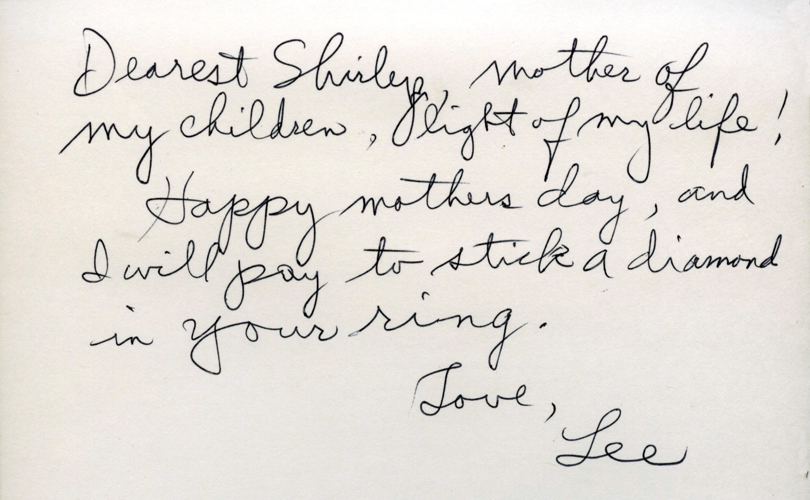 Dearest Shirley, mother of
my children, light of my life!
Happy mothers day, and
I will pay to stick a diamond
in your ring.
Love,
Lee